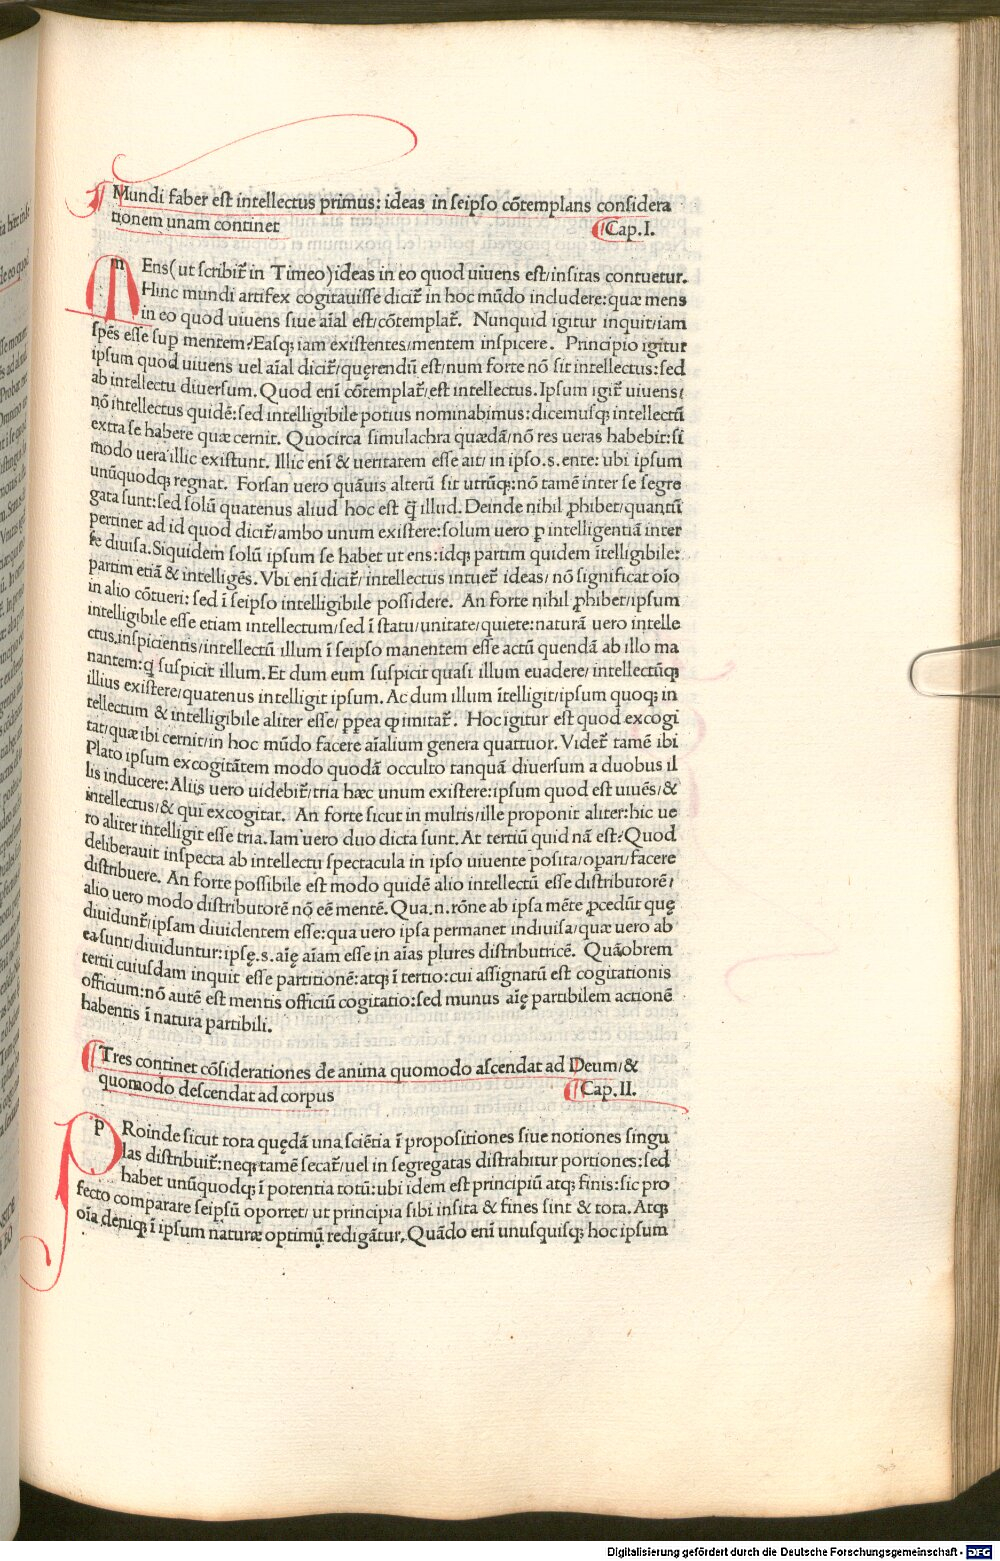 Mundi faber est intellectus primus: ideas in seipso cōtemplans considera
tionem unam continet Cap.I.
mENs(ut scribit᷑ in Timeo)ideas in eo quod uiuens est/insitas contuetur.
Hinc mundi artifex cogitauisse dicit᷑ in hoc mūdo includere:quæ mens
in eo quod uiuens siue aīal est/cōtemplat᷑. Nunquid igitur inquit/iam
spēs esse sup mentem?Easqꝫ iam existentes/mentem inspicere. Principio igitur
ipsum quod uiuens uel aīal dicit᷑/quęrendū est/num forte nō sit intellectus:sed
ab intellectu diuersum. Quod enī cōtemplat᷑/est intellectus. Ipsum igit᷑ uiuens/
nō intellectus quidē:sed intelligibile potius nominabimus:dicemusqꝫ intellectū
extra se habere quæ cernit. Quocirca simulachra quædā/nō res ueras habebit:si
modo uera illic existunt. Illic enī & ueritatem esse ait/ in ipso.s.ente: ubi ipsum
unūquodqꝫ regnat. Forsan uero quāuis alterū sit utrūqꝫ:nō tamē inter se segre
gata sunt:sed solū quatenus aliud hoc est q̄ illud. Deinde nihil ꝓhibet/quantū
pertinet ad id quod dicit᷑/ambo unum existere:solum uero ꝑ intelligentiā inter
se diuisa.Siquidem solū ipsum se habet ut ens:idqꝫ partim quidem ītelligibile:
partim etiā & intelligēs. Vbi enī dicit᷑/ intellectus intuet᷑ ideas/ nō significat oīo
in alio cōtueri: sed ī seipso intelligibile possidere. An forte nihil ꝓhibet/ipsum
intelligibile esse etiam intellectum/sed ī statu/unitate/quiete:naturā uero intelle
ctus.inspicientis/intellectū illum ī seipso manentem esse actū quendā ab illo ma
nantem:qꝫ suspicit illum.Et dum eum suspicit quasi illum euadere/ intellectūqꝫ
illius existere/quatenus intelligit ipsum. Ac dum illum ītelligit/ipsum quoqꝫ in
tellectum & intelligibile aliter esse/ ꝓpea ꝙ imitat᷑. Hoc igitur est quod excogi
tat/quæ ibi cernit/in hoc mūdo facere aīalium genera quattuor. Videt᷑ tamē ibi
Plato ipsum excogitātem modo quodā occulto tanquā diuersum a duobus il
lis inducere: Aliis uero uidebit᷑/tria hæc unum existere:ipsum quod est uiuēs/&
intellectus/& qui excogitat. An forte sicut in multis/ille proponit aliter:hic ue
ro aliter intelligit esse tria. Iam uero duo dicta sunt. At tertiū quid nā est?Quod
deliberauit inspecta ab intellectu spectacula in ipso uiuente posita/opari/facere
distribuere. An forte possibile est modo quidē alio intellectū esse distributorē/
alio uero modo distributorē nō eē mentē. Qua.n.rōne ab ipsa mēte ꝓcedūt quę
diuidunt᷑/ipsam diuidentem esse:qua uero ipsa permanet indiuisa/quæ uero ab
ea sunt/diuiduntur:ipsę.s.aīę aīam esse in aīas plures distributricē. Quāobrem
tertii cuiusdam inquit esse partitionē:atqꝫ ī tertio:cui assignatū est cogitationis
officium:nō autē est mentis officiū cogitatio:sed munus aīę partibilem actionē
habentis ī natura partibili.
Tres continet cōsiderationes de anima quomodo ascendat ad Deum/&
quomodo descendat ad corpus Cap.II.
pROinde sicut tota quędā una sciētia ī propositiones siue notiones singu
las distribuit᷑:neqꝫ tamē secat᷑/uel in segregatas distrahitur portiones:sed
habet unūquodqꝫ ī potentia totū:ubi idem est principiū atqꝫ finis:sic pro
fecto comparare seipsū oportet/ ut principia sibi insita & fines sint & tota. Atqꝫ
oīa deniqꝫ ī ipsum naturæ optimū redigātur. Quādo enī unusquisqꝫ hoc ipsum
Digitalisierung gefördert durch die Deutsche Forschungsgemeinschaft - DFG